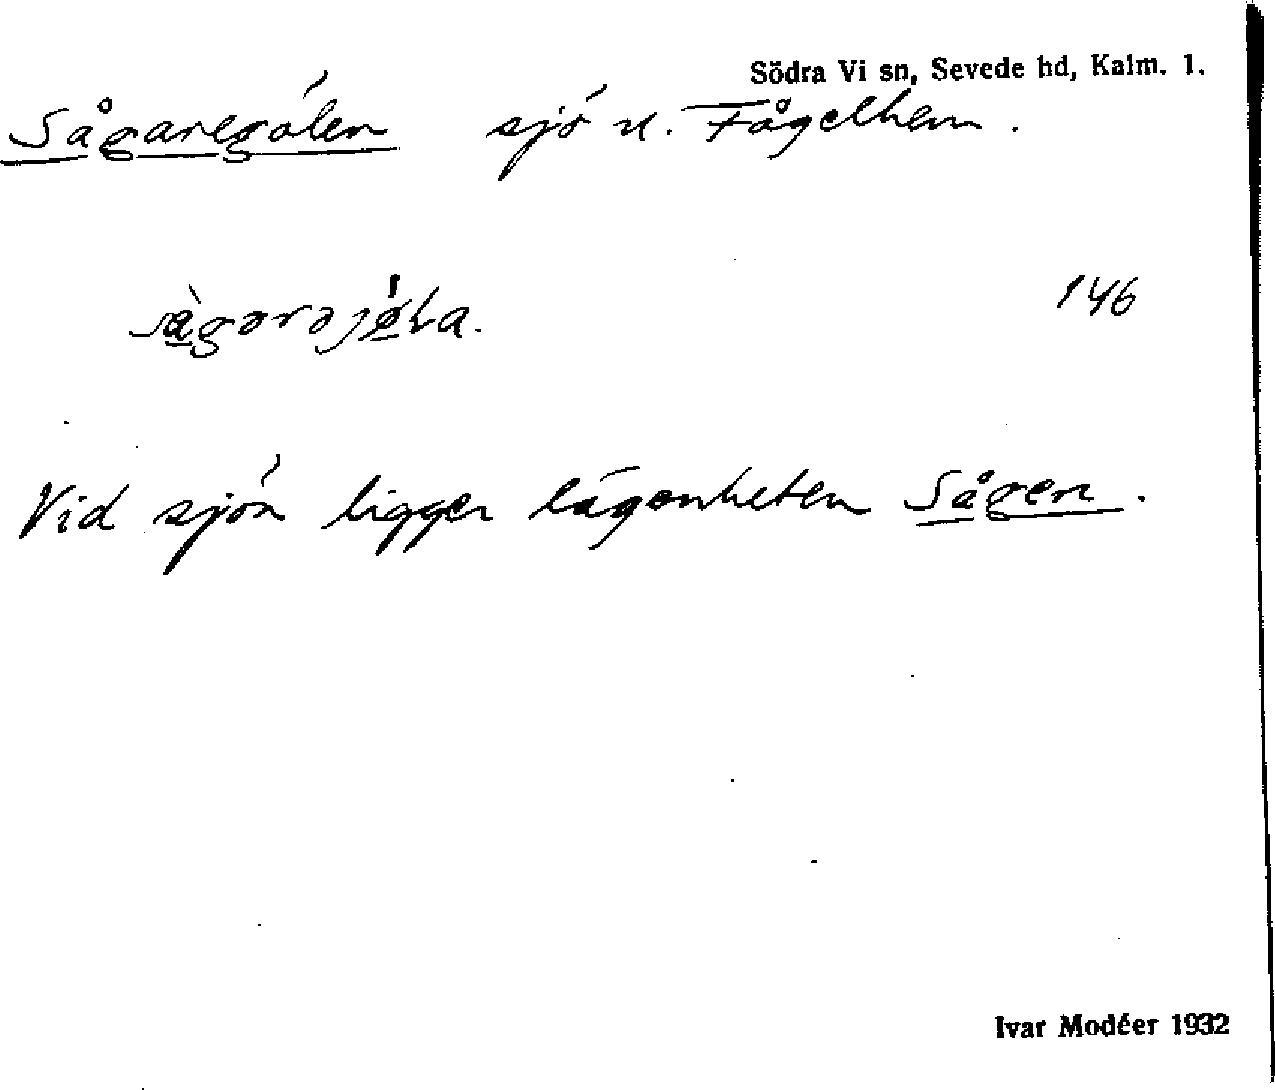 Södra Vi sn, Sevede hd, Kalm. l.
Sågaregölen sjö u. Fågelhem.
146
Vid sjön ligger lägenheten Sågen.
Ivar Modéer 1932